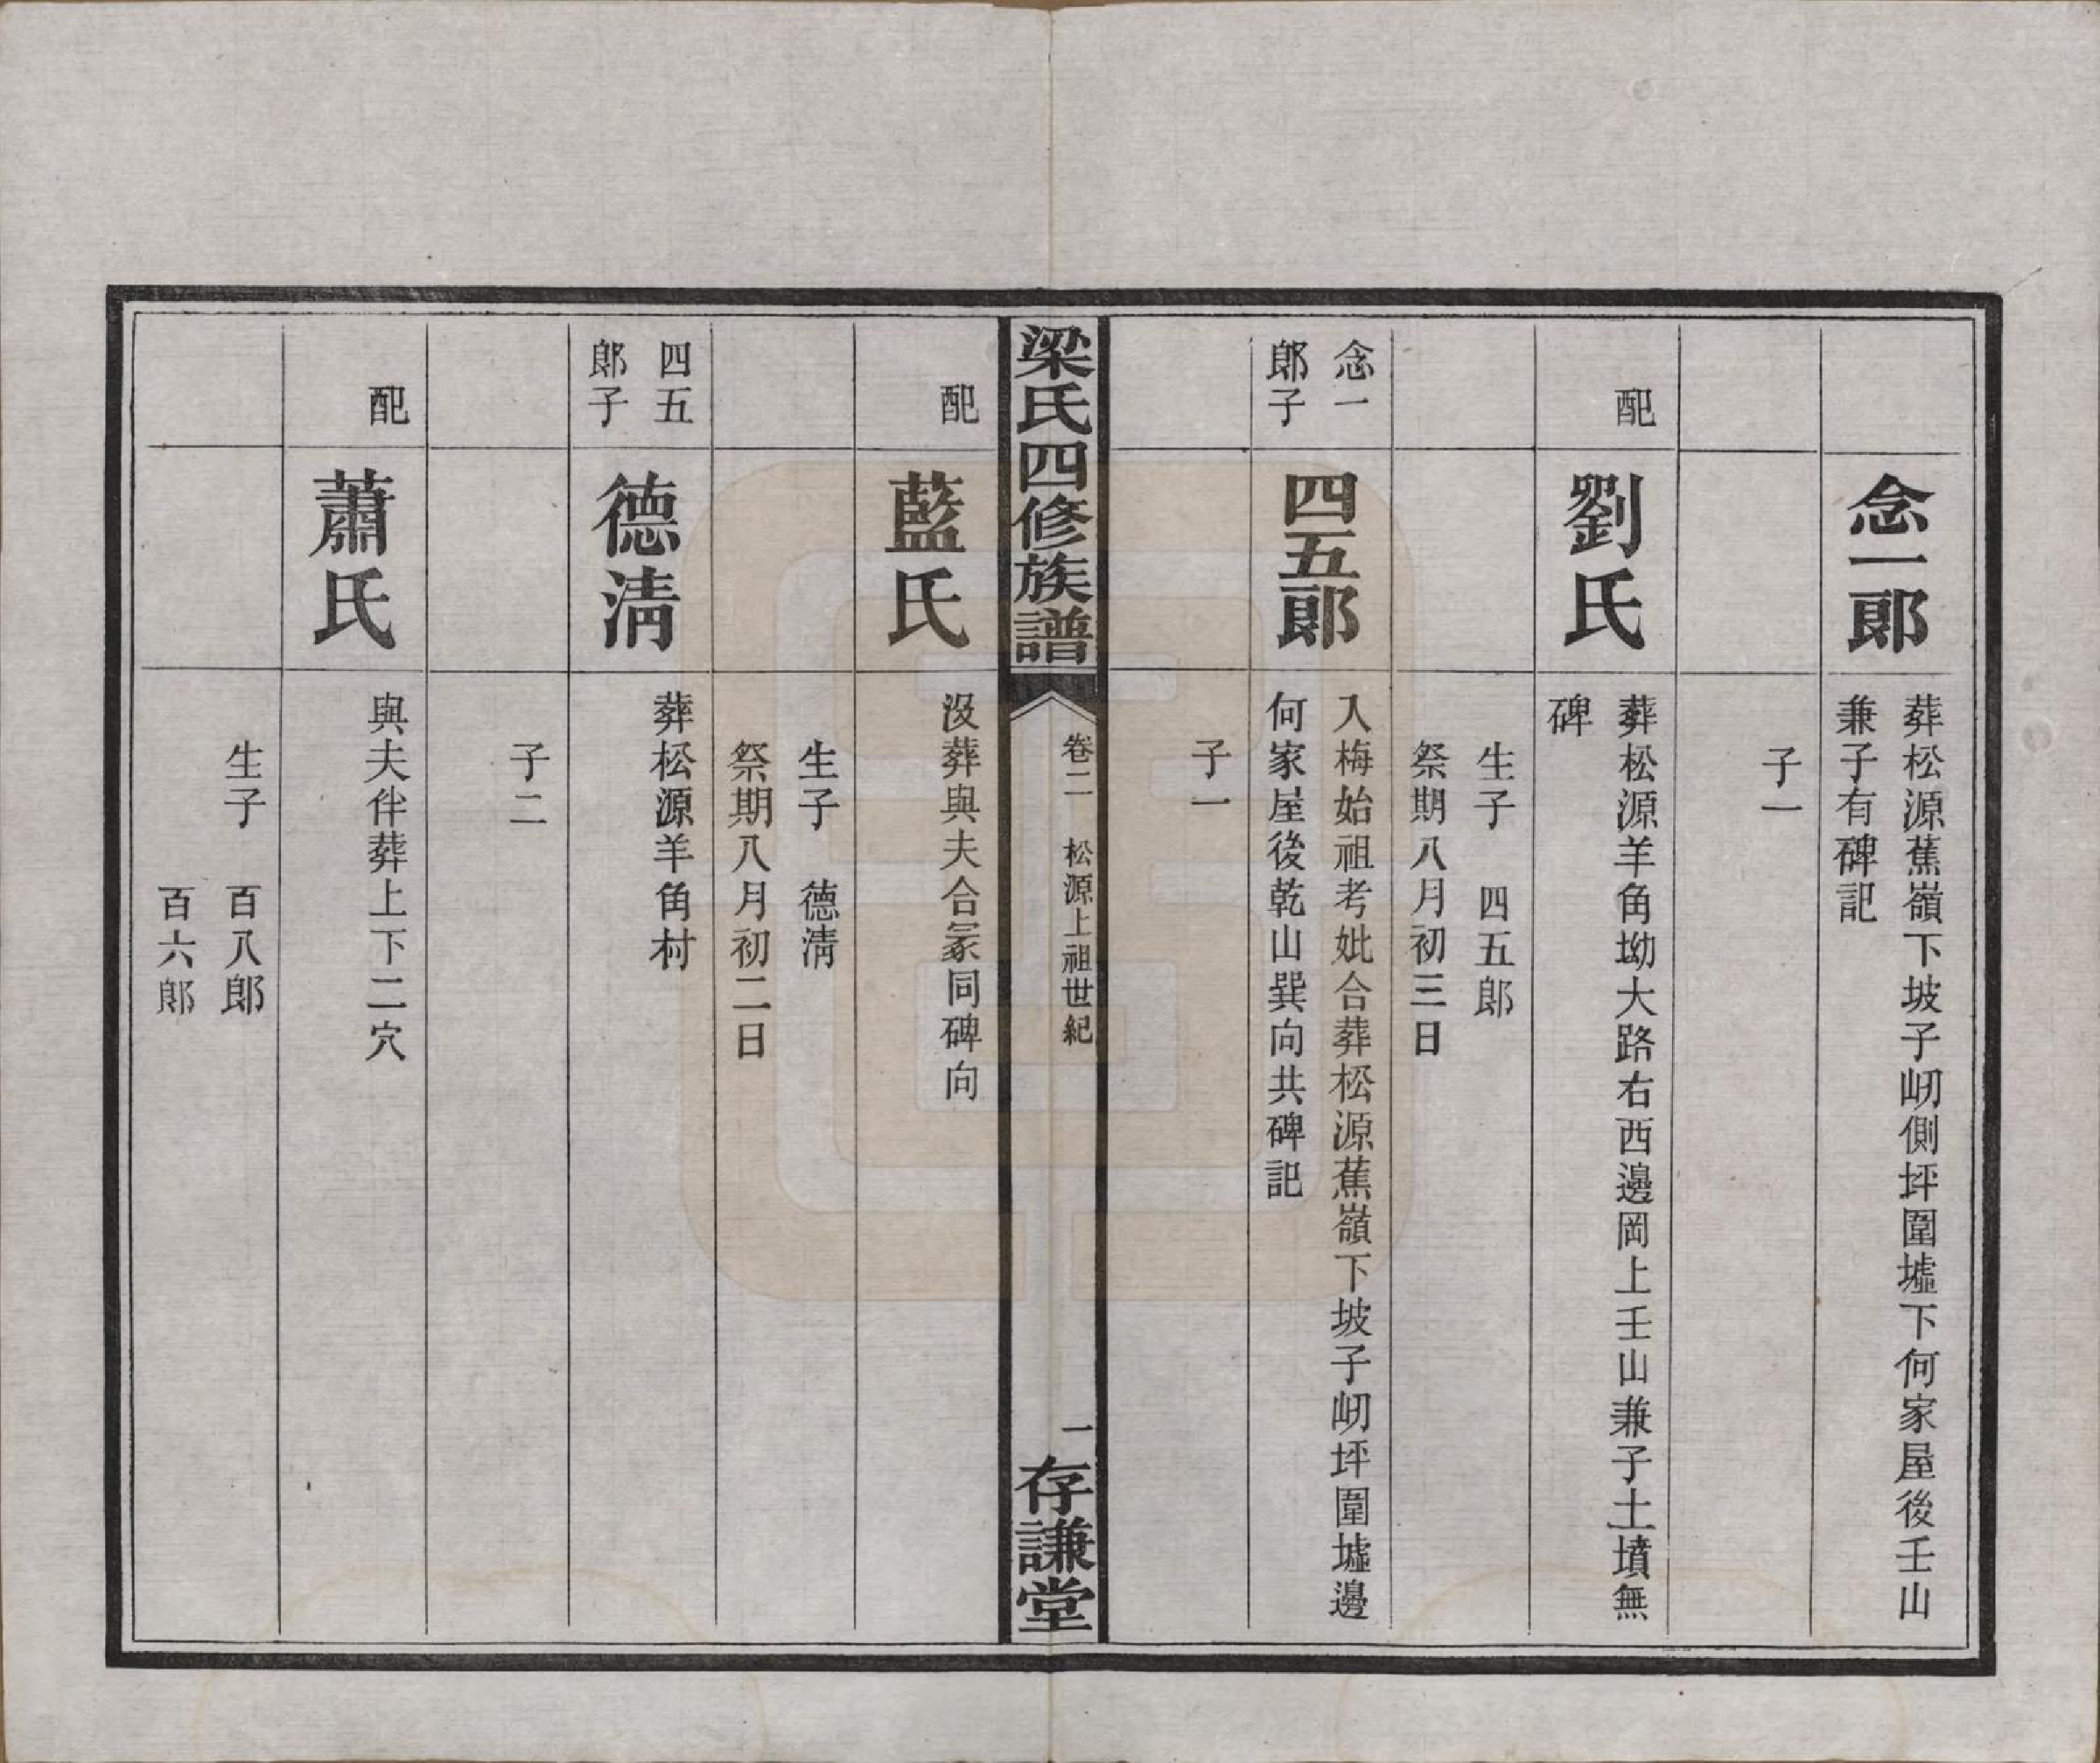 念一郎
葬松源蕉嶺下坡子㘭側坪圍墟下何家屋後壬山
兼子有碑記
子一
配
劉氏
葬松源羊角坳大路右西邊岡上壬山兼子土墳無
碑
生子 四五郎
祭期八月初三日
念一
郎子
四五郎
入梅始祖考妣合葬松源蕉嶺下坡子㘭坪圍墟邊
何家屋後乾山巽向共碑記
子一
梁氏四修族譜
卷二 松源上祖世紀
一
存謙堂
配
藍氏
沒葬與夫合冢同碑向
生子 德淸
祭期八月初二日
四五
郎子
德淸
葬松源羊角村
子二
配
蕭氏
與夫伴葬上下二穴
生子 百八郎
百六郎